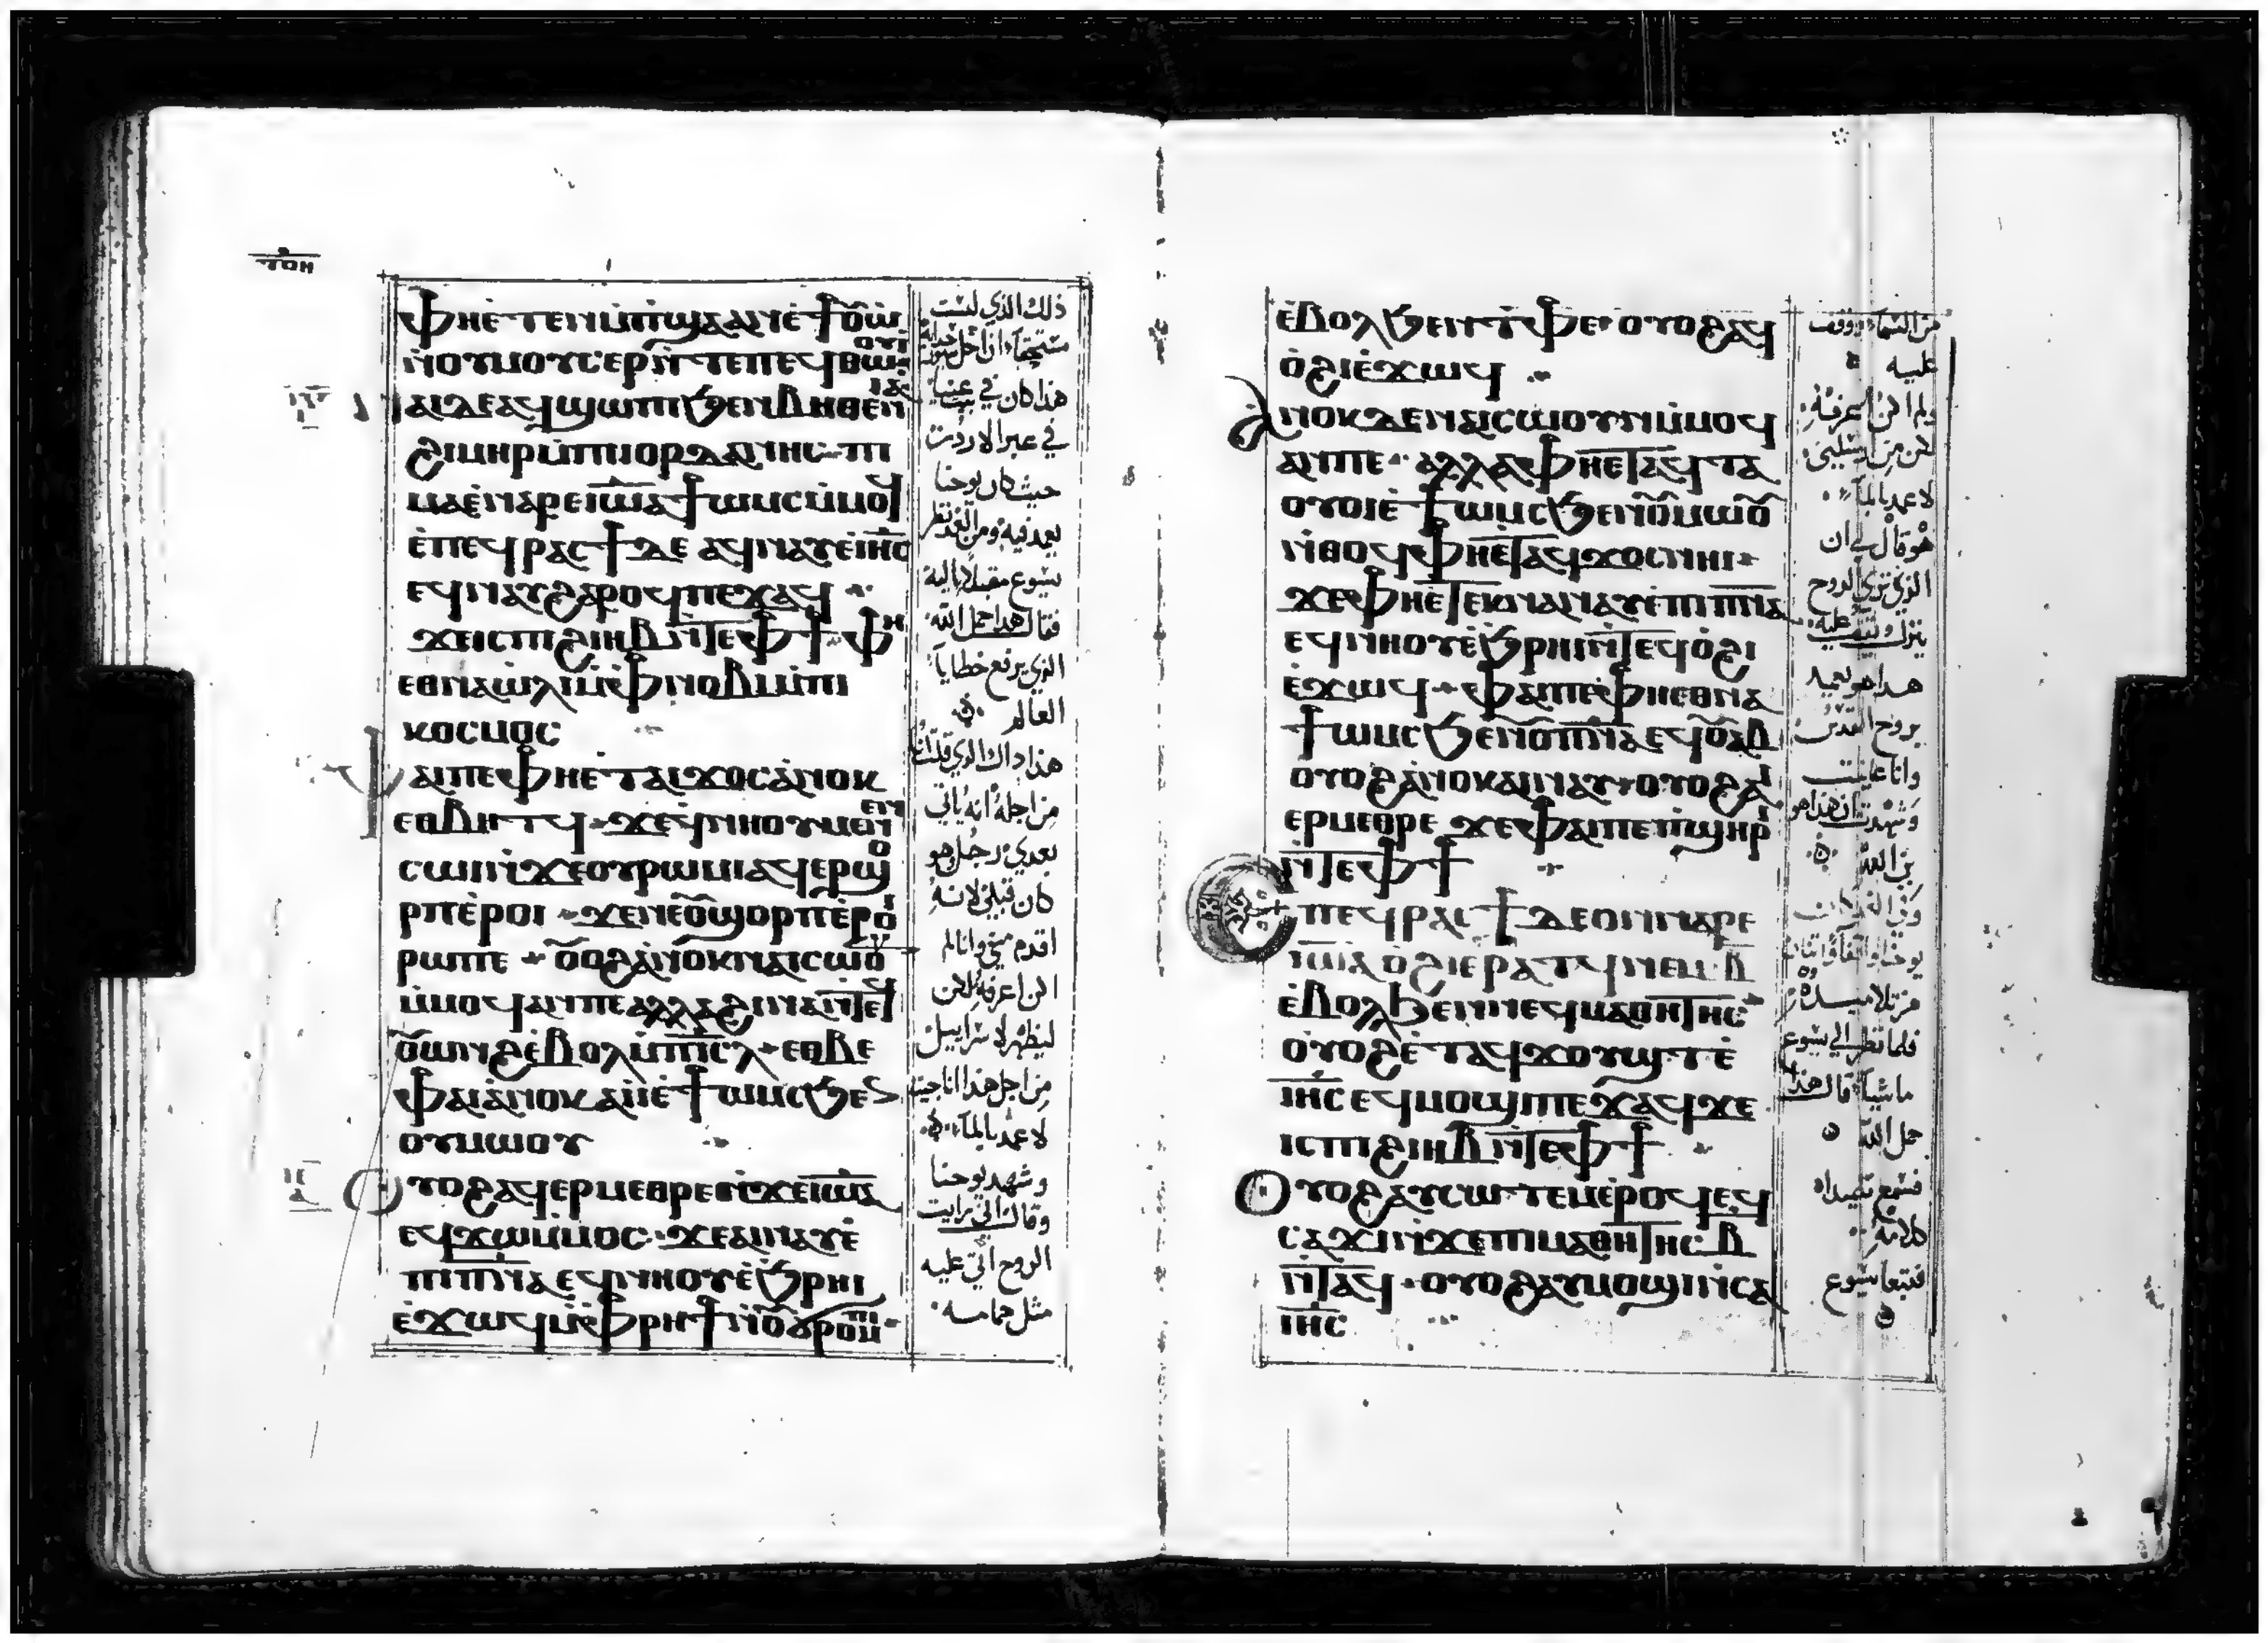 ⲧⲟⲏ
ⲫⲏⲉ̀ⲧⲉⲛⲙ̀ⲡϣⲁⲁⲛⲉ̀ϯⲟ̅ⲱ̀
ⲛ̀ⲟⲩⲙⲟⲩⲥⲉⲣⲛ̀ⲧⲉⲡⲉϥⲑⲱⲟⲩⲓ
ⲛⲁⲓⲇⲉⲁϥϣⲱⲡⲓϧⲉⲛⲃⲏⲑⲉⲛⲓⲁ
ϩⲓⲙⲏⲣⲙ̀ⲡⲓⲓⲟⲣⲇⲁⲛⲏⲥ ⲡⲓ
ⲙⲁⲉ̀ⲛⲁⲣⲉⲓⲱ̅ⲁϯⲱⲙⲥⲙ̀ⲙⲟϥ
ⲉ̀ⲡⲉϥⲣⲁⲥϯ ⲇⲉ ⲁϥⲛⲁⲩⲉ̀ⲓⲏ̅ⲥ
ⲉϥⲛⲏⲩϩⲁⲣⲟϥⲡⲉϫⲁϥ
ϫⲉⲓⲥⲡⲓϩⲓⲏⲃⲛ̀ⲧⲉⲫϯ ⲫⲏ
ⲉⲑⲛⲁⲱ̀ⲗⲓⲙ̀ⲫⲛⲟⲃⲓⲙ̀ⲡⲓ
ⲕⲟⲥⲙⲟⲥ
ⲫⲁⲓⲡⲉⲫⲏⲉ̀ⲧⲁⲓϫⲟⲥⲁ̀ⲛⲟⲕ
ⲉⲑⲃⲏⲧϥ ϫⲉϥⲛⲏⲟⲩⲙⲉⲛⲉⲛ
ⲥⲱⲓⲛ̀ϫⲉⲟⲩⲣⲱⲙⲓⲁϥⲉⲣϣⲟ
ⲣⲡⲉ̀ⲣⲟⲓ ϫⲉⲛⲉⲟ̅ϣⲟⲣⲡⲉ̀ⲣⲟⲓ
ⲣⲱⲡⲉ ⲟ̅ⲟϩⲁ̀ⲛⲟⲕⲛⲁⲓⲥⲱⲟ̅
ⲙ̀ⲙⲟϥⲁⲛⲡⲉⲁⲗⲗⲁϩⲓⲛⲁⲛ̀ⲧⲉϥ
ⲟ̅ⲱⲛϩⲉ̀ⲃⲟⲗⲙ̀ⲡⲓⲥ̅ⲗ ⲉⲑⲃⲉ
ⲫⲁⲓⲁ̀ⲛⲟⲕ ⲁⲓⲓ̀ⲉ̀ϯⲱⲙⲥϧⲉⲛ
ⲟⲩⲙⲱⲟⲩ
ⲟⲩⲟϩⲁϥⲉⲣⲙⲉⲑⲣⲉⲛ̀ϫⲉⲓⲱ̅ⲁ
ⲉϥϫⲱⲙ̀ⲙⲟⲥ ϫⲉⲁⲓⲛⲁⲩⲉ̀
ⲡⲓⲡⲛ̅ⲁ ⲉϥⲛⲏⲟⲩⲉ̀ϧⲣⲏⲓ
ⲉ̀ϫⲱϥⲙ̀ⲫⲣⲏϯⲛ̀ⲟ̅ϭⲣⲟⲙⲡⲓ
ذلك الذي لست
مستحقا ان احل سيور حذائه
هذا كان في بيت عنيا
في عبر الاردن
حيث كان يوحنا
يعمد فيه ومن الغد نظر
يسوع مقبلا اليه
فقال هذا حمل الله
الذي يرفع خطايا
العالم
هذا ذاك الذي قلت انا
من اجله انه ياتي
بعدي رجل هو
كان قبلي لانه
اقدم مني وانا لم
اكن اعرفه لكن
ليظهر لاسراييل
من اجل هذا انا جيت
لاعمد بالماء
وشهد يوحنا
وقال اني رايت
الروح اتي عليه
مثل حمامه
ⲉ̀ⲃⲟⲗϧⲉⲛⲧⲫⲉ ⲟⲩⲟϩⲁϥ
ⲟ̀ϩⲓⲉ̀ϫⲱϥ
ⲁⲛⲟⲕⲇⲉⲛⲁⲓⲥⲱⲟⲩⲛⲙ̀ⲙⲟϥ
ⲁⲛⲡⲉ ⲁⲗⲗⲁⲫⲏⲉ̀ⲧⲁϥⲧⲁ
ⲟⲩⲟⲓⲉ̀ϯⲱⲙⲥϧⲉⲛⲟ̅ⲙⲱⲟ̅
ⲛ̀ⲑⲟϥⲫⲏⲉ̀ⲧⲁϥϫⲟⲥⲛⲏⲓ
ϫⲉⲫⲏⲉ̀ⲧⲉⲕⲛⲁⲛⲁⲩⲉ̀ⲡⲓⲡⲛ̅ⲁ
ⲉϥⲛⲏⲟⲩⲉ̀ϧⲣⲏⲓⲛ̀ⲧⲉϥⲟ̀ϩⲓ
ⲉ̀ϫⲱϥ ⲫⲁⲓⲡⲉⲫⲏⲉⲑⲛⲁ
ϯⲱⲙⲥϧⲉⲛⲟ̅ⲡⲛ̅ⲁ ⲉϥⲟ̅ⲁⲃ
ⲟⲩⲟϩⲁ̀ⲛⲟⲕⲁⲓⲛⲁⲩ ⲟⲩⲟϩⲁⲓ
ⲉⲣⲙⲉⲑⲣⲉ ϫⲉⲫⲁⲓⲡⲉⲡϣⲏⲣⲓ
ⲛ̀ⲧⲉⲫϯ
ⲉⲡⲉϥⲣⲁⲥϯⲇⲉⲟⲛⲛⲁⲣⲉ
ⲓⲱ̅ⲁ ⲟ̀ϩⲓⲉⲣⲁⲧϥⲛⲉⲙ ⲃ̅
ⲉ̀ⲃⲟⲗϧⲉⲛⲛⲉϥⲙⲁⲑⲏⲧⲏⲥ
ⲟⲩⲟϩⲉ̀ⲧⲁϥϫⲟⲩϣⲧⲉ̀
ⲓⲏ̅ⲥ ⲉϥⲙⲟϣⲓⲡⲉϫⲁϥϫⲉ
ⲓⲥⲡⲓϩⲓⲏⲃⲛ̀ⲧⲉⲫϯ
ⲟⲩⲟϩⲁⲩⲥⲱⲧⲉⲙⲉ̀ⲣⲟϥⲉϥ
ⲥⲁϫⲓⲛ̀ϫⲉⲡⲓⲙⲁⲑⲏⲧⲏⲥ ⲃ̅
ⲛ̀ⲧⲁϥ ⲟⲩⲟϩⲁⲩⲙⲟϣⲓⲛ̀ⲥⲁ
ⲓⲏ̅ⲥ
من السماء ووقف
عليه
ولم اكن اعرفه
لكن من ارسلني
لاعمد بالماء
هو قال لي ان
الذي تري الروح
ينزل ويقف عليه
هذا هو يعمد
بروح القدس
وانا عاينت
وشهدت ان هذا هو
بن الله
يوحنا واقفا واثنان
من تلاميذه
فلما نظر الي يسوع
ماشيا قال هذا
حمل الله
فسمع تلميذاه
كلامه
فتبعا يسوع